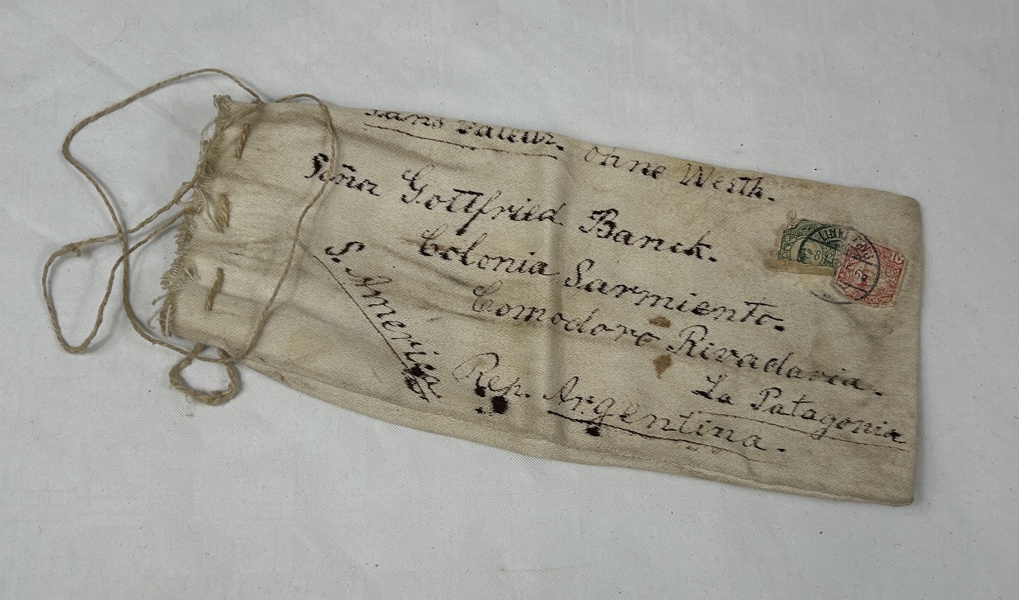 Sans Valeur. Ohne Werth.
Señor Gottfried Banck.
Colonia Sarmiento.
Comodoro Rivadavia.
La Patagonia
Rep. Argentina.
S. America
10